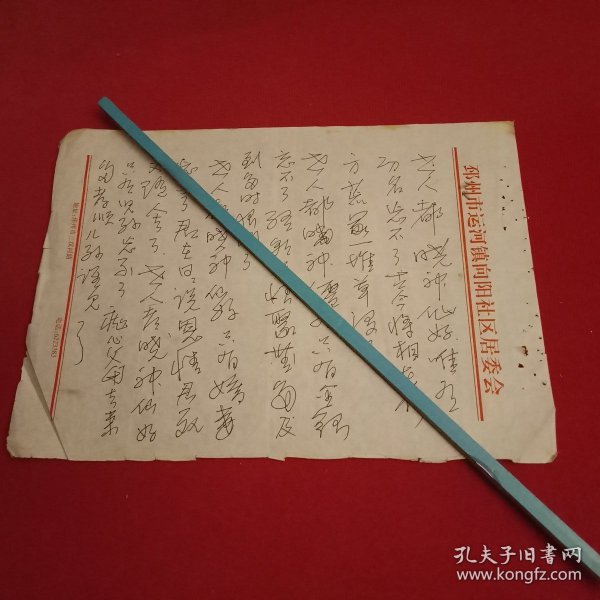 邳州市运河镇向阳社区居委会
世人都晓神仙好惟有
功名忘不了古今将相
方荒冢一堆草没
世人都晓神 只有金银
忘不了终朝 恨聚无多及
到多时
世人 晓神仙好只有娇妻
忘不了君在日说恩情君死
又随人去了世人都晓神仙好
只有儿孙忘不了痴心父母古来
多孝顺儿孙谁见了
孔夫子旧书网
www.kongfz.com